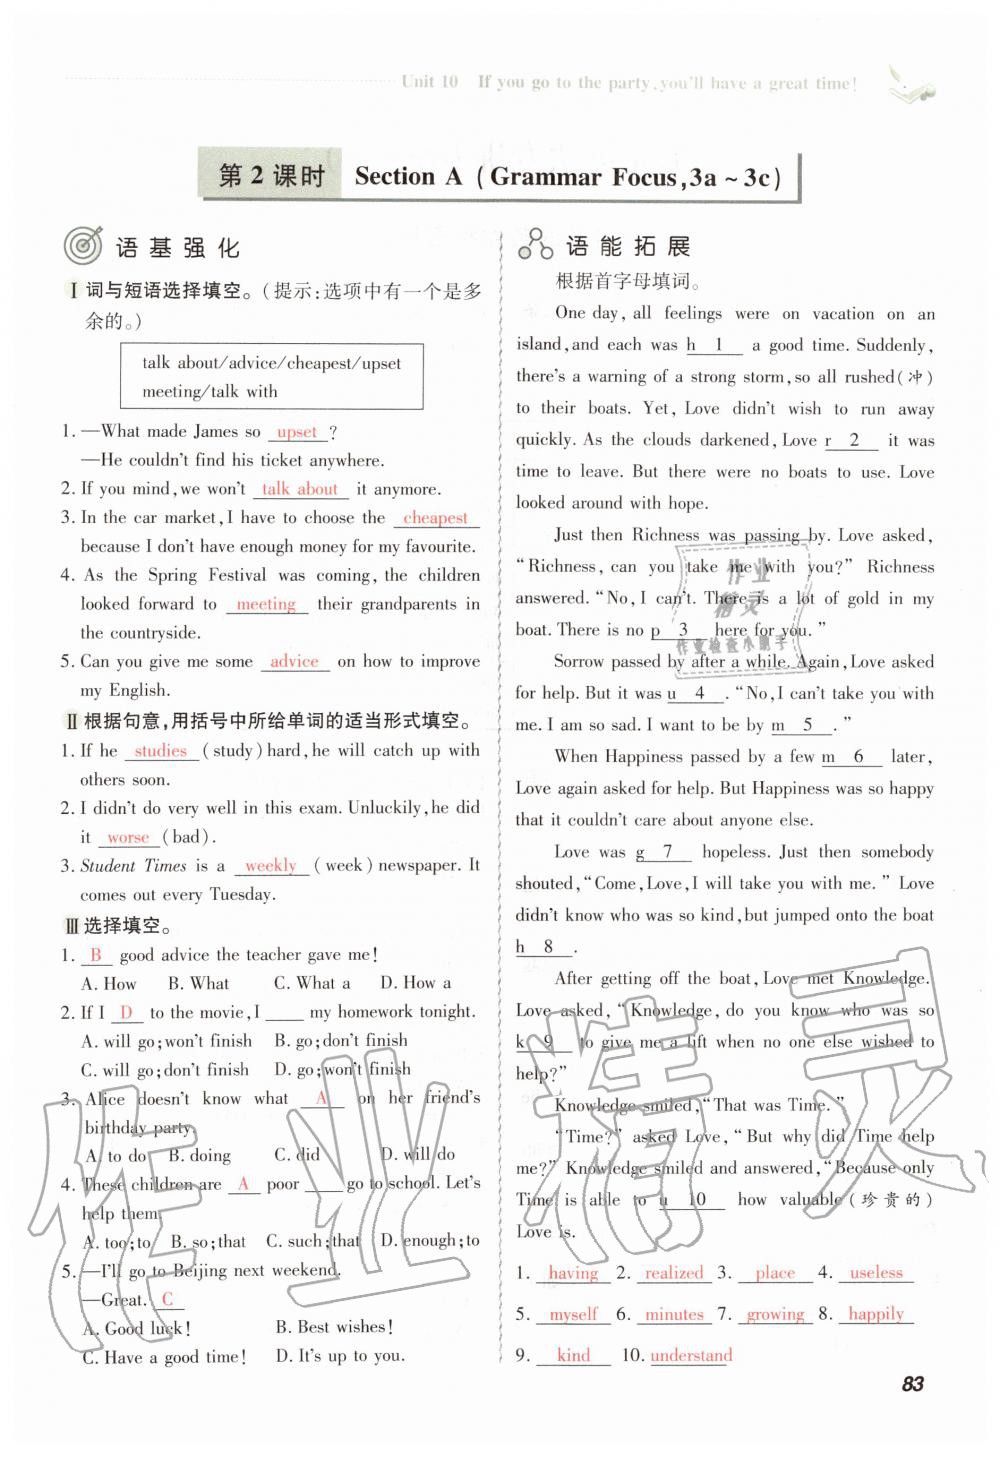 Unit 10 If you go to the party, you'll have a great time!
第 2 课时 Section A (Grammar Focus, 3a ~ 3c)
语基强化
Ⅰ 词与短语选择填空。(提示:选项中有一个是多
余的。)
talk about/advice/cheapest/upset
meeting/talk with
1. —What made James so upset ?
—He couldn't find his ticket anywhere.
2. If you mind, we won't talk about it anymore.
3. In the car market, I have to choose the cheapest
because I don't have enough money for my favourite.
4. As the Spring Festival was coming, the children
looked forward to meeting their grandparents in
the countryside.
5. Can you give me some advice on how to improve
my English.
Ⅱ 根据句意,用括号中所给单词的适当形式填空。
1. If he studies (study) hard, he will catch up with
others soon.
2. I didn't do very well in this exam. Unluckily, he did
it worse (bad).
3. Student Times is a weekly (week) newspaper. It
comes out every Tuesday.
Ⅲ 选择填空。
1. B good advice the teacher gave me!
A. How B. What C. What a D. How a
2. If I D to the movie, I ____ my homework tonight.
A. will go; won't finish B. go; don't finish
C. will go; don't finish D. go; won't finish
3. Alice doesn't know what A on her friend's
birthday party.
A. to do B. doing C. did D. will do
4. These children are A poor ____ go to school. Let's
help them.
A. too; to B. so; that C. such; that D. enough; to
5. —I'll go to Beijing next weekend.
—Great. C
A. Good luck! B. Best wishes!
C. Have a good time! D. It's up to you.
语能拓展
根据首字母填词。
One day, all feelings were on vacation on an
island, and each was h 1 a good time. Suddenly,
there's a warning of a strong storm, so all rushed(冲)
to their boats. Yet, Love didn't wish to run away
quickly. As the clouds darkened, Love r 2 it was
time to leave. But there were no boats to use. Love
looked around with hope.
Just then Richness was passing by. Love asked,
"Richness, can you take me with you?" Richness
answered. "No, I can't. There is a lot of gold in my
boat. There is no p 3 here for you."
Sorrow passed by after a while. Again, Love asked
for help. But it was u 4 . "No, I can't take you with
me. I am so sad. I want to be by m 5 ."
When Happiness passed by a few m 6 later,
Love again asked for help. But Happiness was so happy
that it couldn't care about anyone else.
Love was g 7 hopeless. Just then somebody
shouted, "Come, Love, I will take you with me." Love
didn't know who was so kind, but jumped onto the boat
h 8 .
After getting off the boat, Love met Knowledge.
Love asked, "Knowledge, do you know who was so
k 9 to give me a lift when no one else wished to
help?"
Knowledge smiled, "That was Time."
"Time?" asked Love, "But why did Time help
me?" Knowledge smiled and answered, "Because only
Time is able to u 10 how valuable(珍贵的)
Love is.
1. having 2. realized 3. place 4. useless
5. myself 6. minutes 7. growing 8. happily
9. kind 10. understand
83
作业
精灵
作业检查小助手
作业精灵